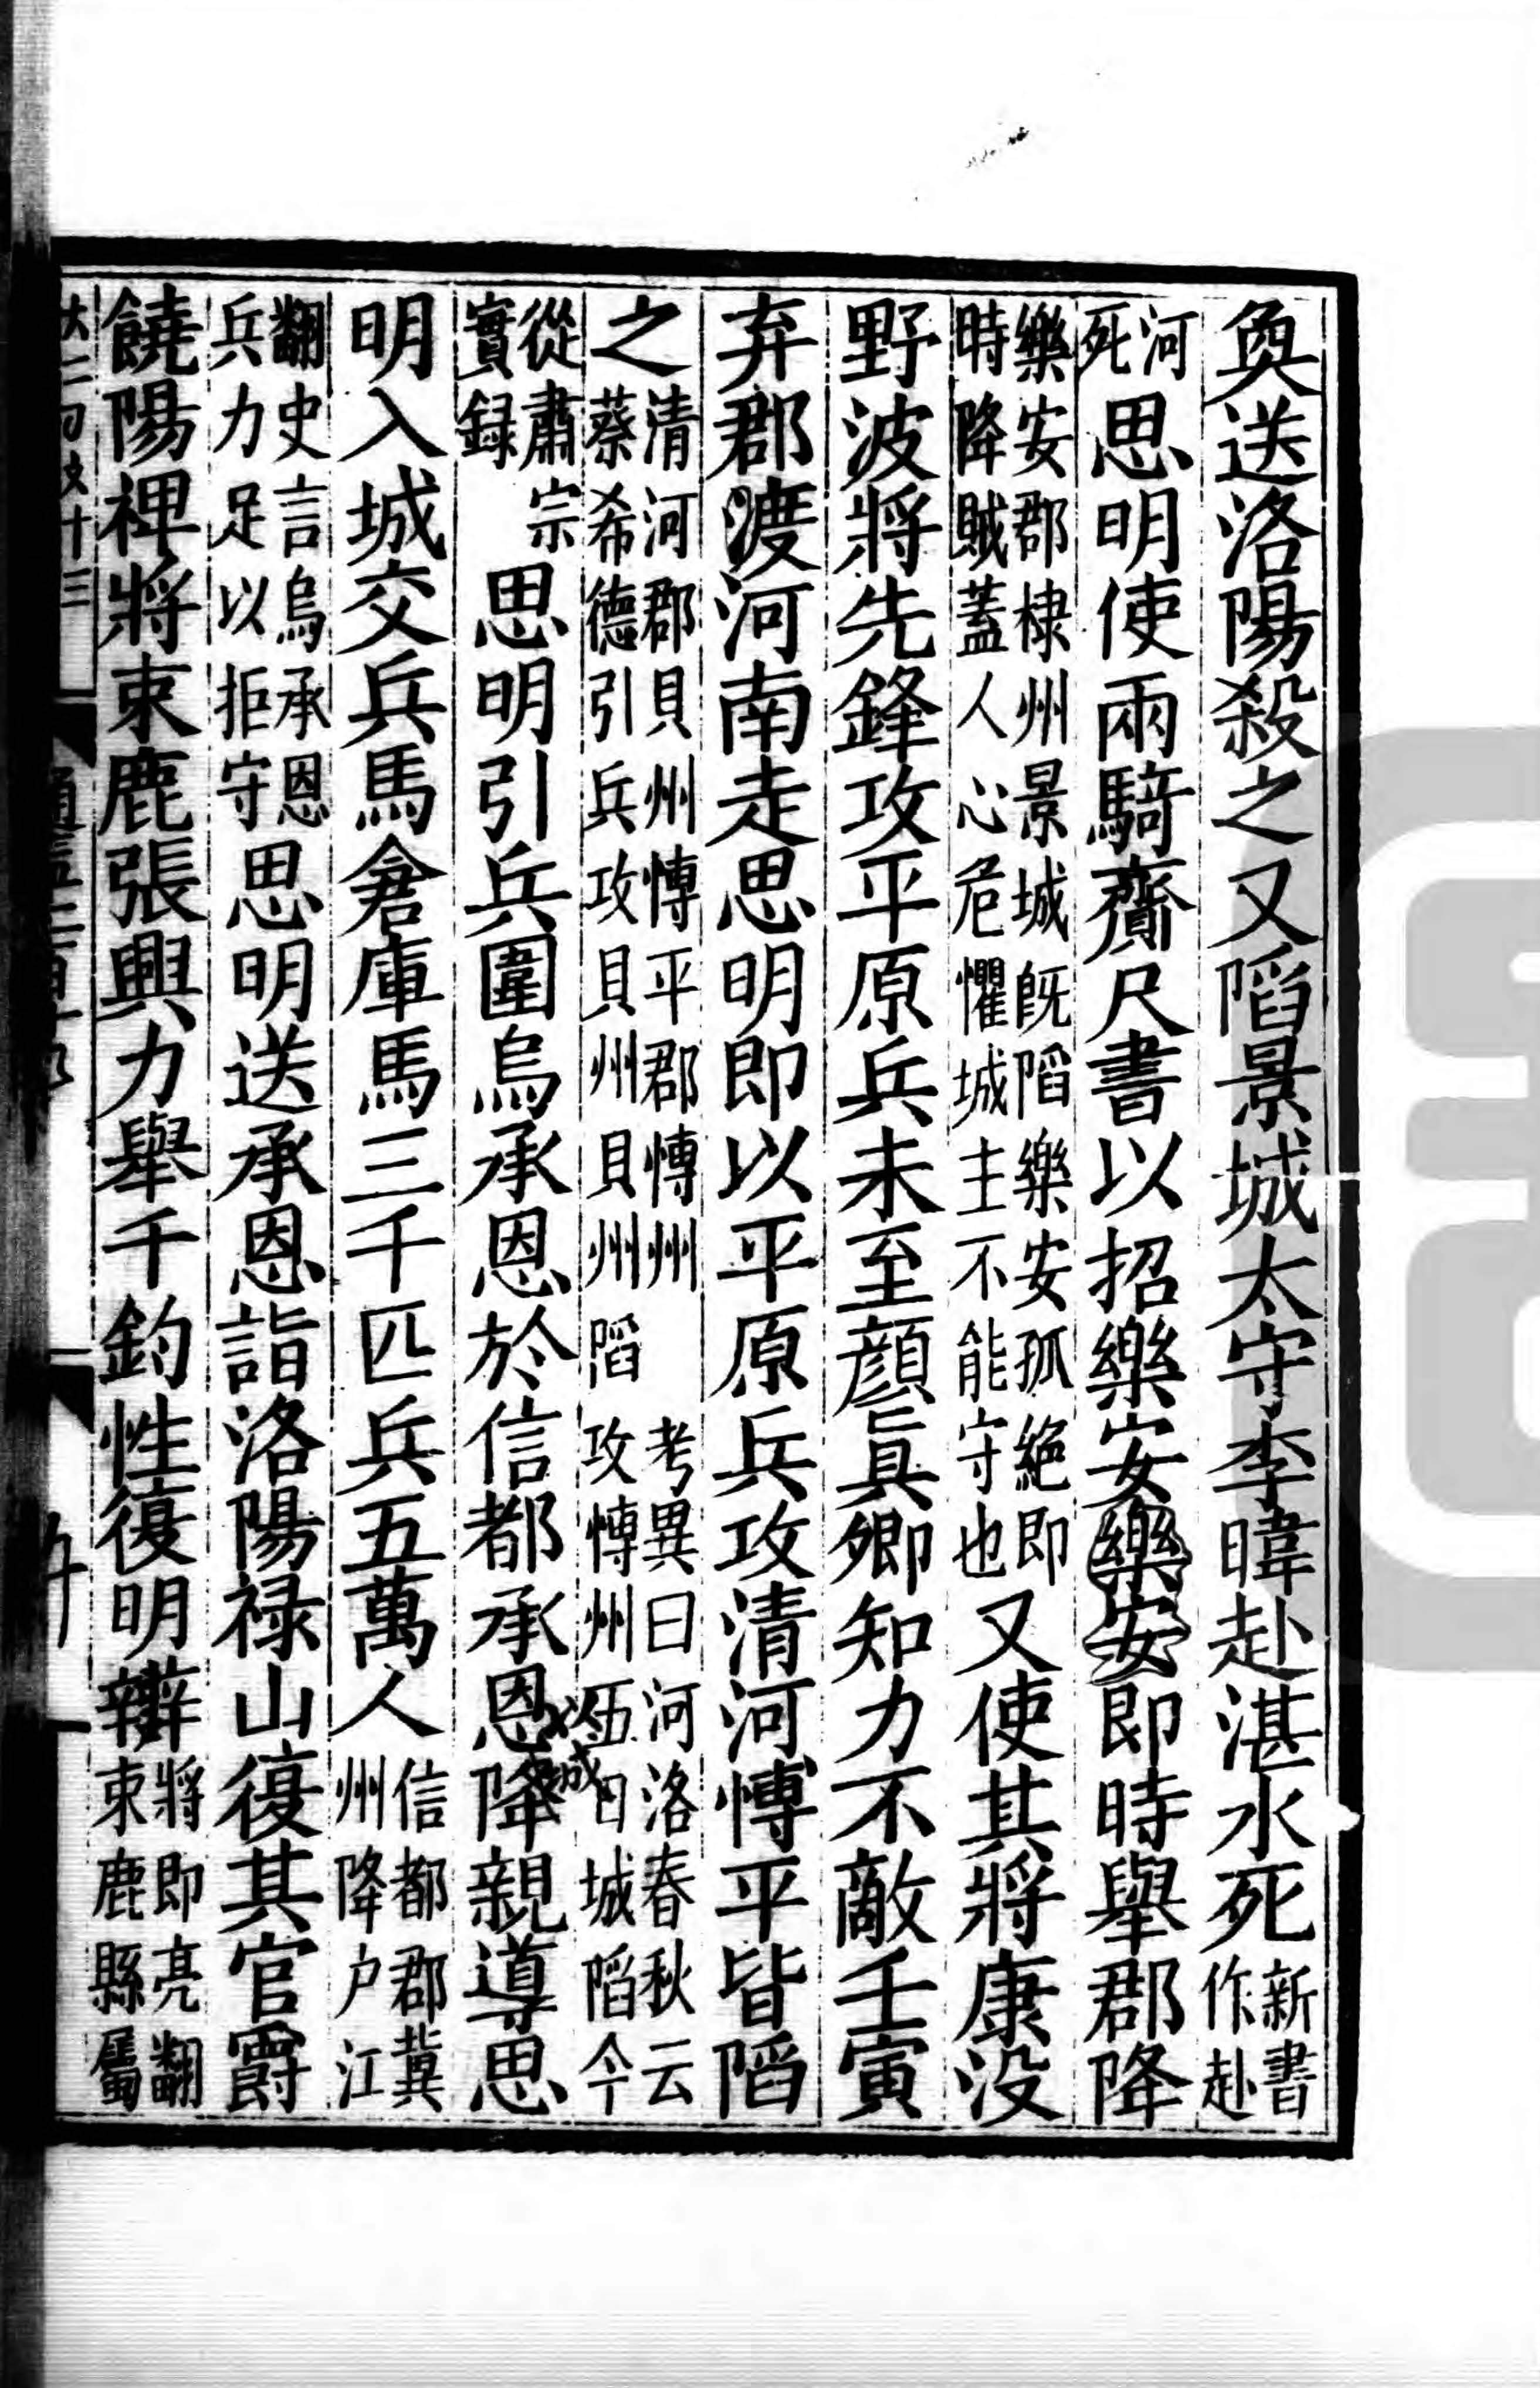 奐送洛陽殺之又䧟景城太守李暐赴湛水死新書作赴
河死思明使兩騎齎尺書以招樂安樂安即時舉郡降
樂安郡棣州景城既䧟樂安孤絶即時降賊蓋人心危懼城主不能守也又使其將康没
野波將先鋒攻平原兵未至顔眞卿知力不敵壬寅
弃郡渡河南走思明即以平原兵攻清河愽平皆䧟
之清河郡貝州愽平郡愽州蔡希德引兵攻貝州貝州䧟考異曰河洛春秋云攻愽州伍日城䧟今
從肅宗實録思明引兵圍烏承恩於信都承恩降親導思
明入城交兵馬倉庫馬三千匹兵五萬人信都郡冀州降户江
翻史言烏承恩兵力足以拒守思明送承恩詣洛陽禄山復其官爵
饒陽裨將束鹿張興力舉千鈞性復明辯將即亮翻束鹿縣屬